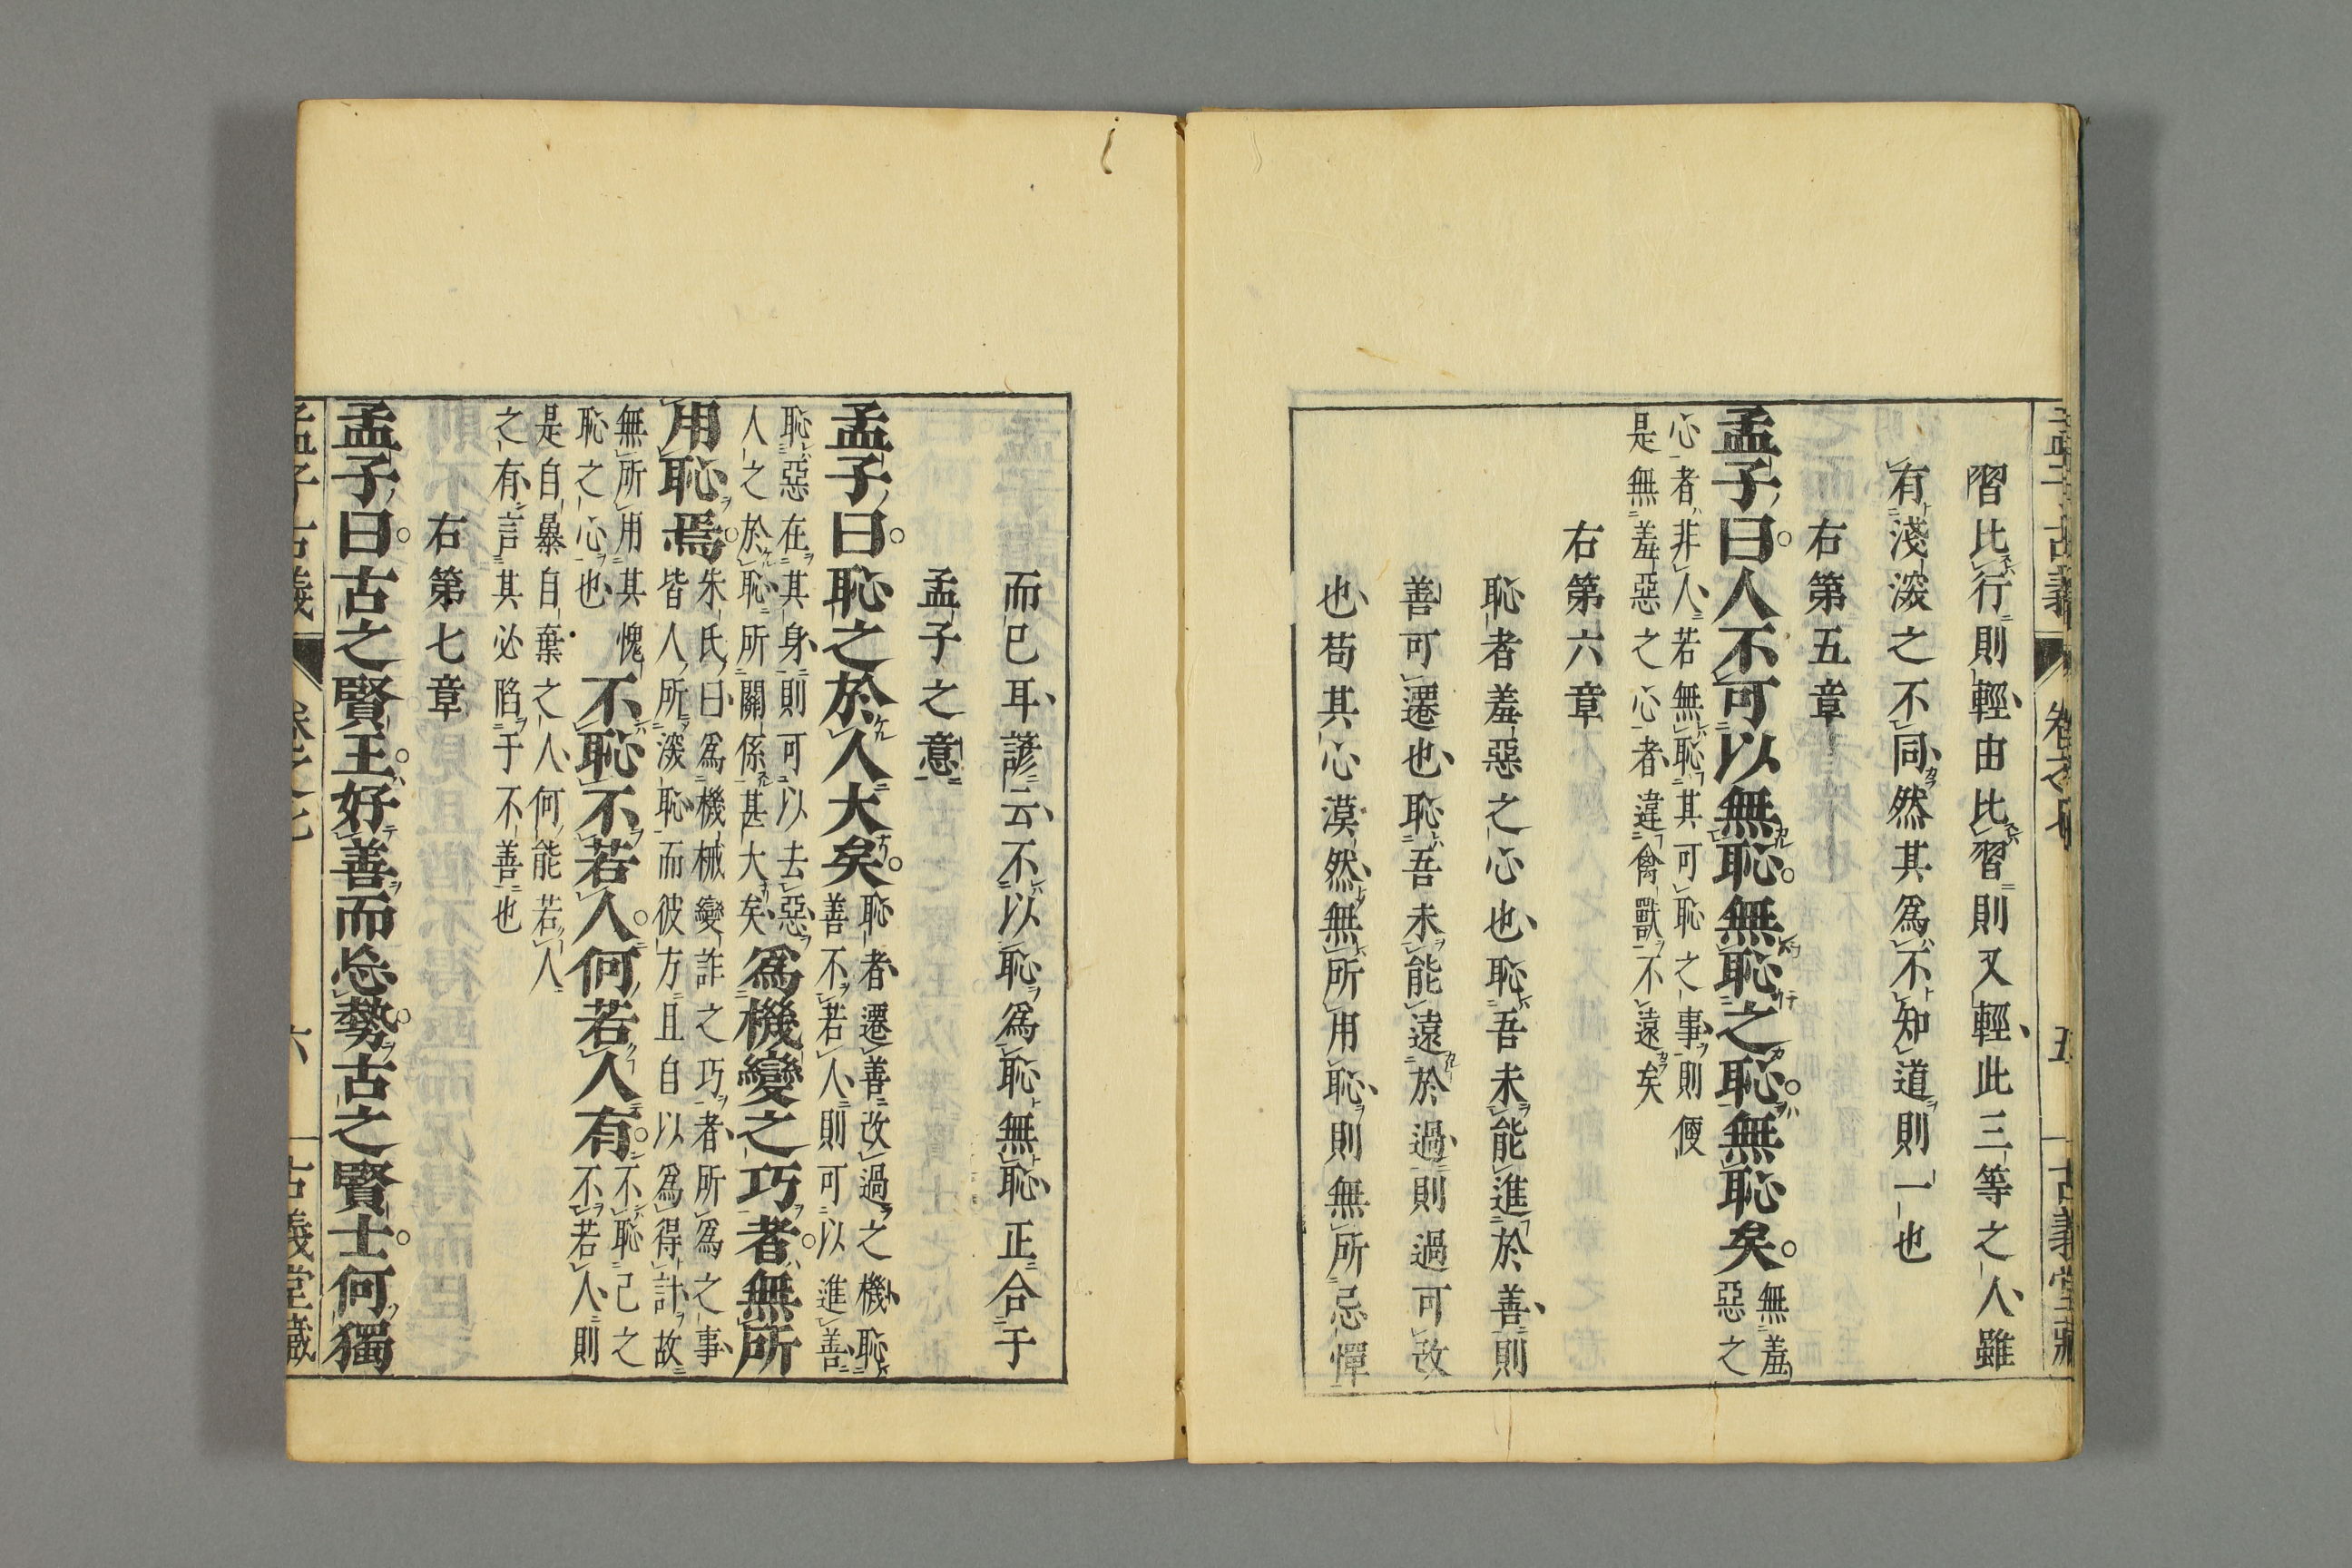 孟子古義 卷之七 五 古義堂藏
習比行則輕由比習則又輕此三等之人雖
有淺深之不同然其爲不知道則一也
右第五章
孟子曰人不可以無恥無恥之恥無恥矣無羞惡之
心者非人若無恥其可恥之事則便
是無羞惡之心者違禽獸不遠矣
右第六章
恥者羞惡之心也恥吾未能進於善則
善可遷也恥吾未能遠於過則過可改
也苟其心漠然無所用恥則無所忌憚
而已耳諺云不以恥爲恥無恥正合于
孟子之意
孟子曰恥之於人大矣恥者遷善改過之機恥
善不若人則可以進善
恥惡在其身則可以去惡
人之於恥所關係甚大矣爲機變之巧者無所
用恥焉朱氏曰爲機械變詐之巧者所爲之事
皆人所深恥而彼方且自以爲得計故
無所用其愧
恥之心也不恥不若人何若人有不恥己之
不若人則
是自暴自棄之人何能若人
之有言其必陷于不善也
右第七章
孟子曰古之賢王好善而忘勢古之賢士何獨
孟子古義 卷之七 六 古義堂藏